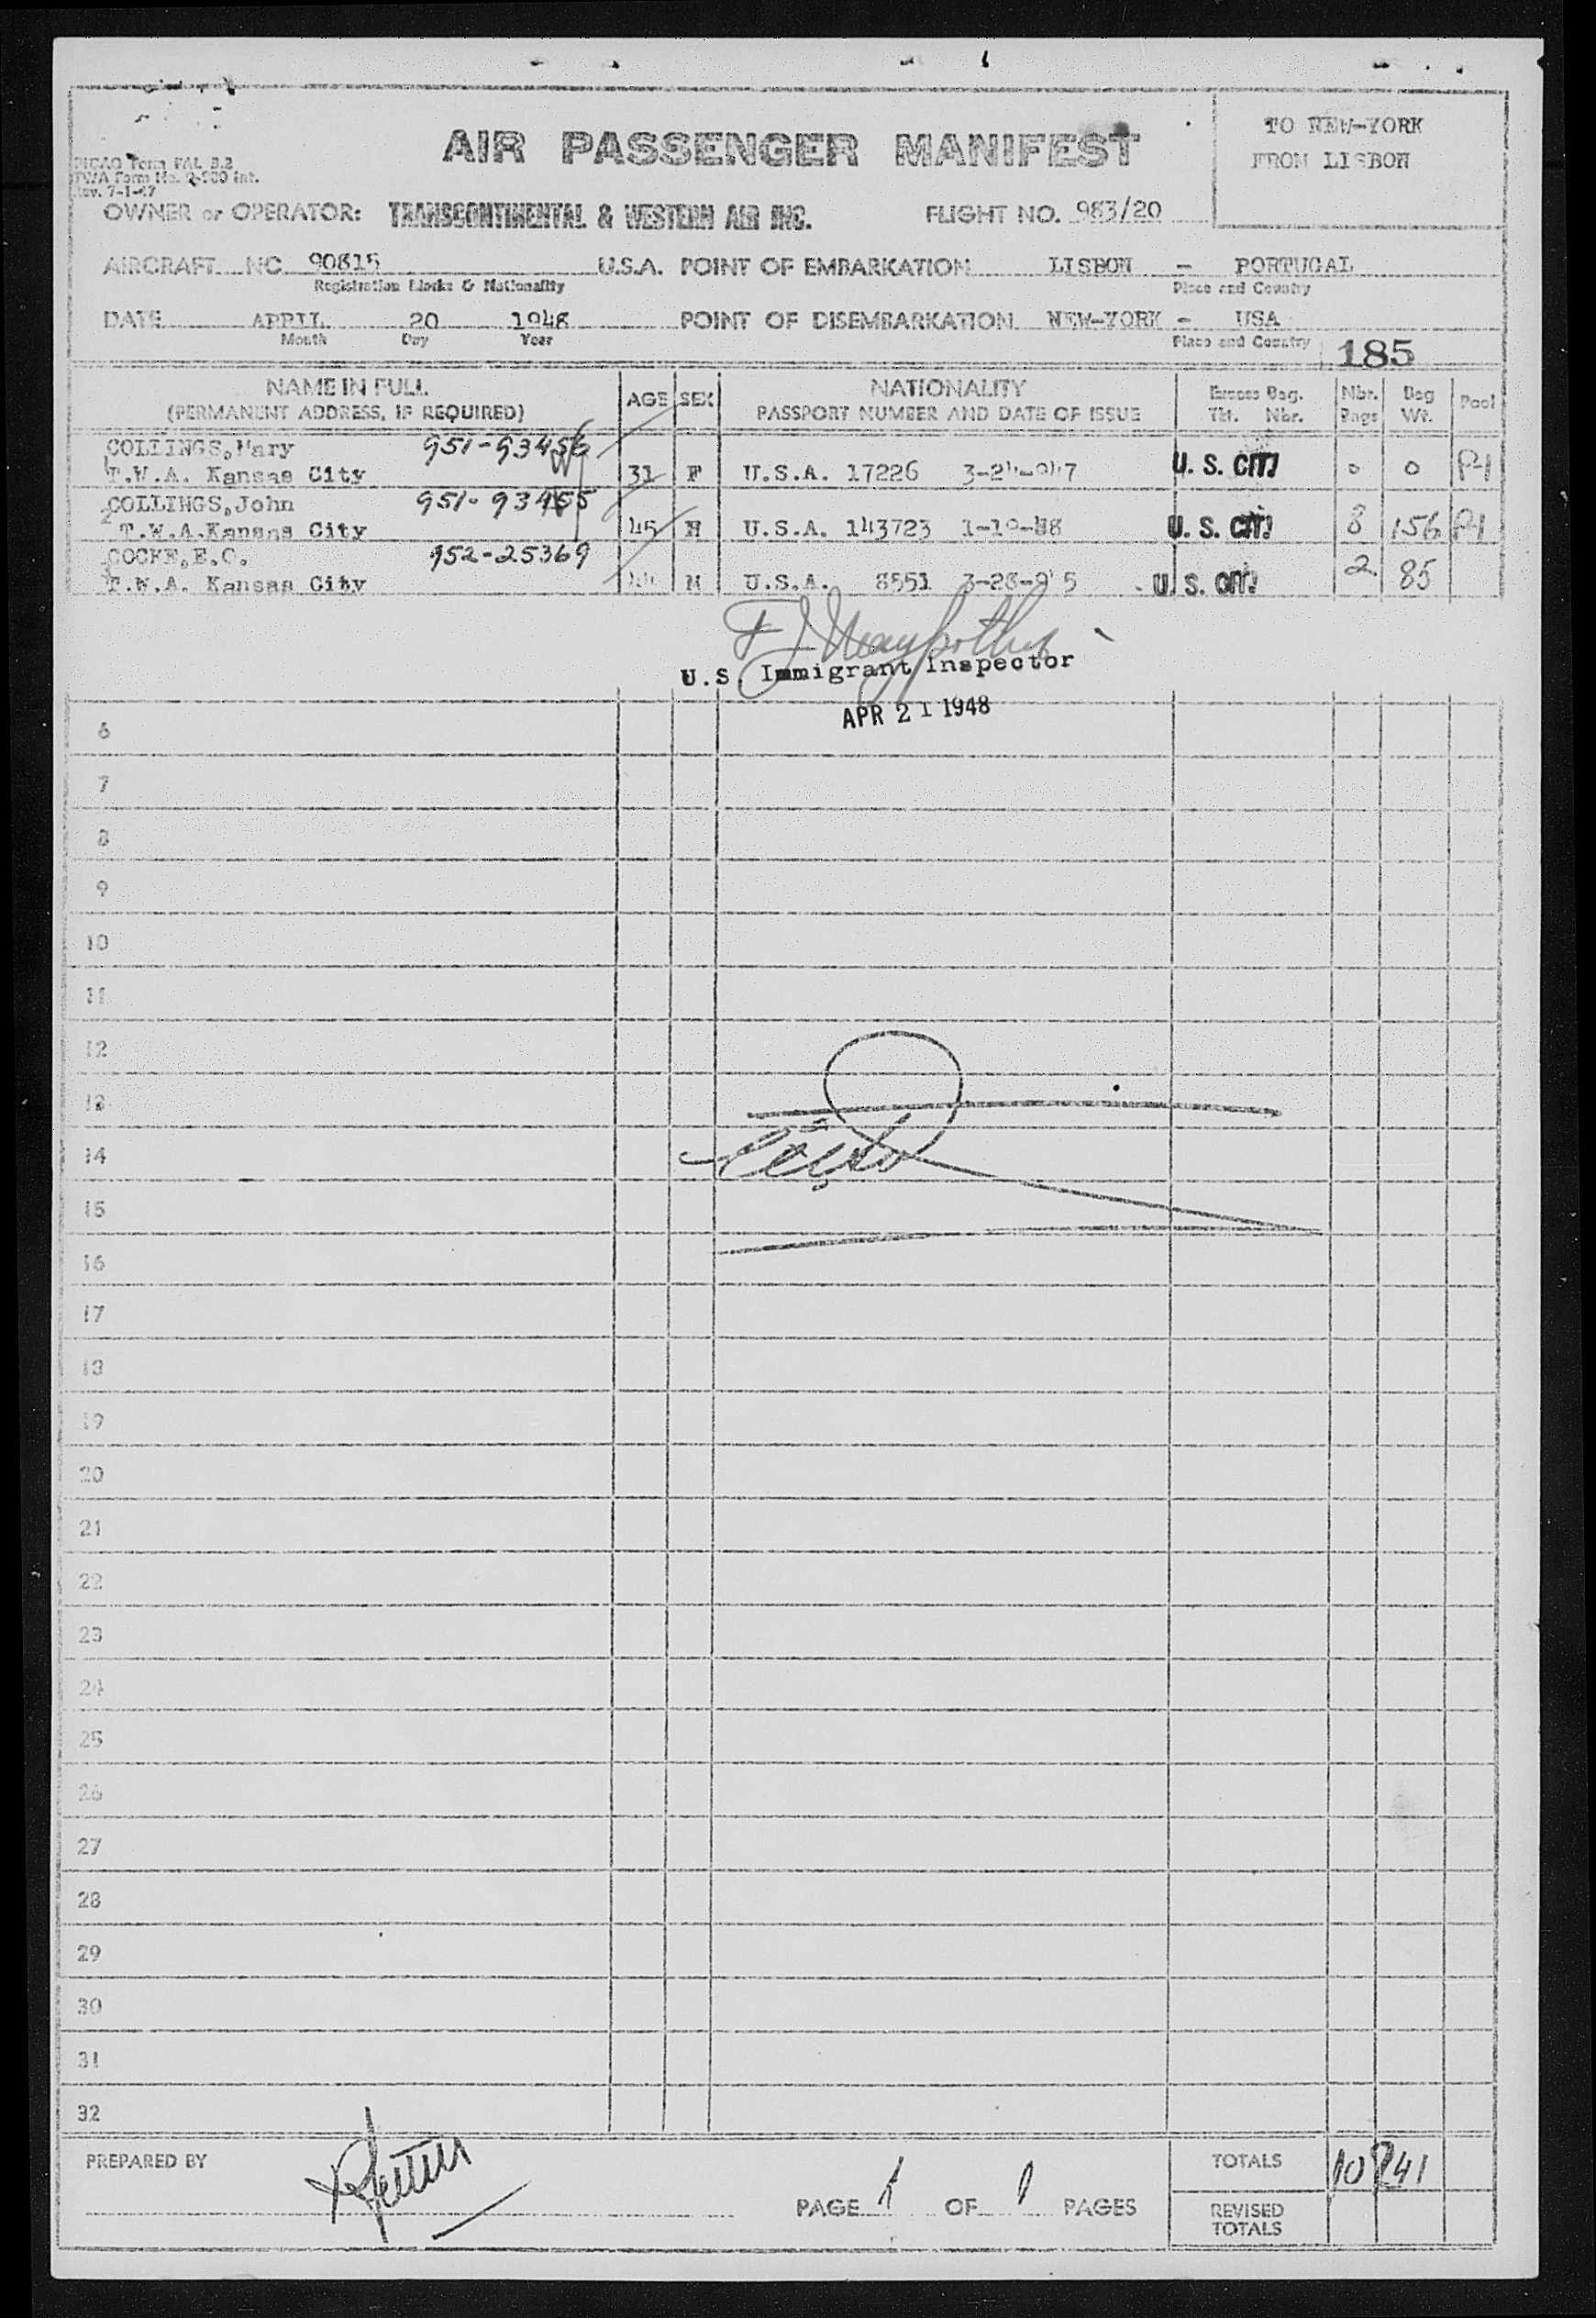 TO NEW-YORK
FROM LISBON
AIR PASSENGER MANIFEST
PICAO Form FAL 3.2
TWA Form No. 0-500 Int.
Rev. 7-1-47
OWNER or OPERATOR: TRANSCONTINENTAL & WESTERN AIR INC. FLIGHT NO. 983/20
AIRCRAFT NC 90815 U.S.A. POINT OF EMBARKATION LISBON - PORTUGAL
Registration Marks & Nationality Place and Country
DATE APRIL 20 1948 POINT OF DISEMBARKATION NEW-YORK - USA
Month Day Year Place and Country 185
NAME IN FULL AGE SEX NATIONALITY Excess Bag. Nbr. Bag Pool
(PERMANENT ADDRESS, IF REQUIRED) PASSPORT NUMBER AND DATE OF ISSUE Tkt. Nbr. Bags Wt.
COLLINGS, Mary 951-93456
T.W.A. Kansas City 31 F U.S.A. 17226 3-24-947 U. S. CIT. 0 0 P1
COLLINGS, John 951-93455
T.W.A. Kansas City 45 M U.S.A. 143723 U. S. CIT. 8 156 P1
COCKE, E.C. 952-25369
T.W.A. Kansas City M U.S.A. 8551 U. S. CIT. 2 85
U.S. Immigrant Inspector
APR 21 1948
6
7
8
9
10
11
12
13
14
15
16
17
18
19
20
21
22
23
24
25
26
27
28
29
30
31
32
PREPARED BY TOTALS 10 241
PAGE 1 OF 1 PAGES REVISED
TOTALS